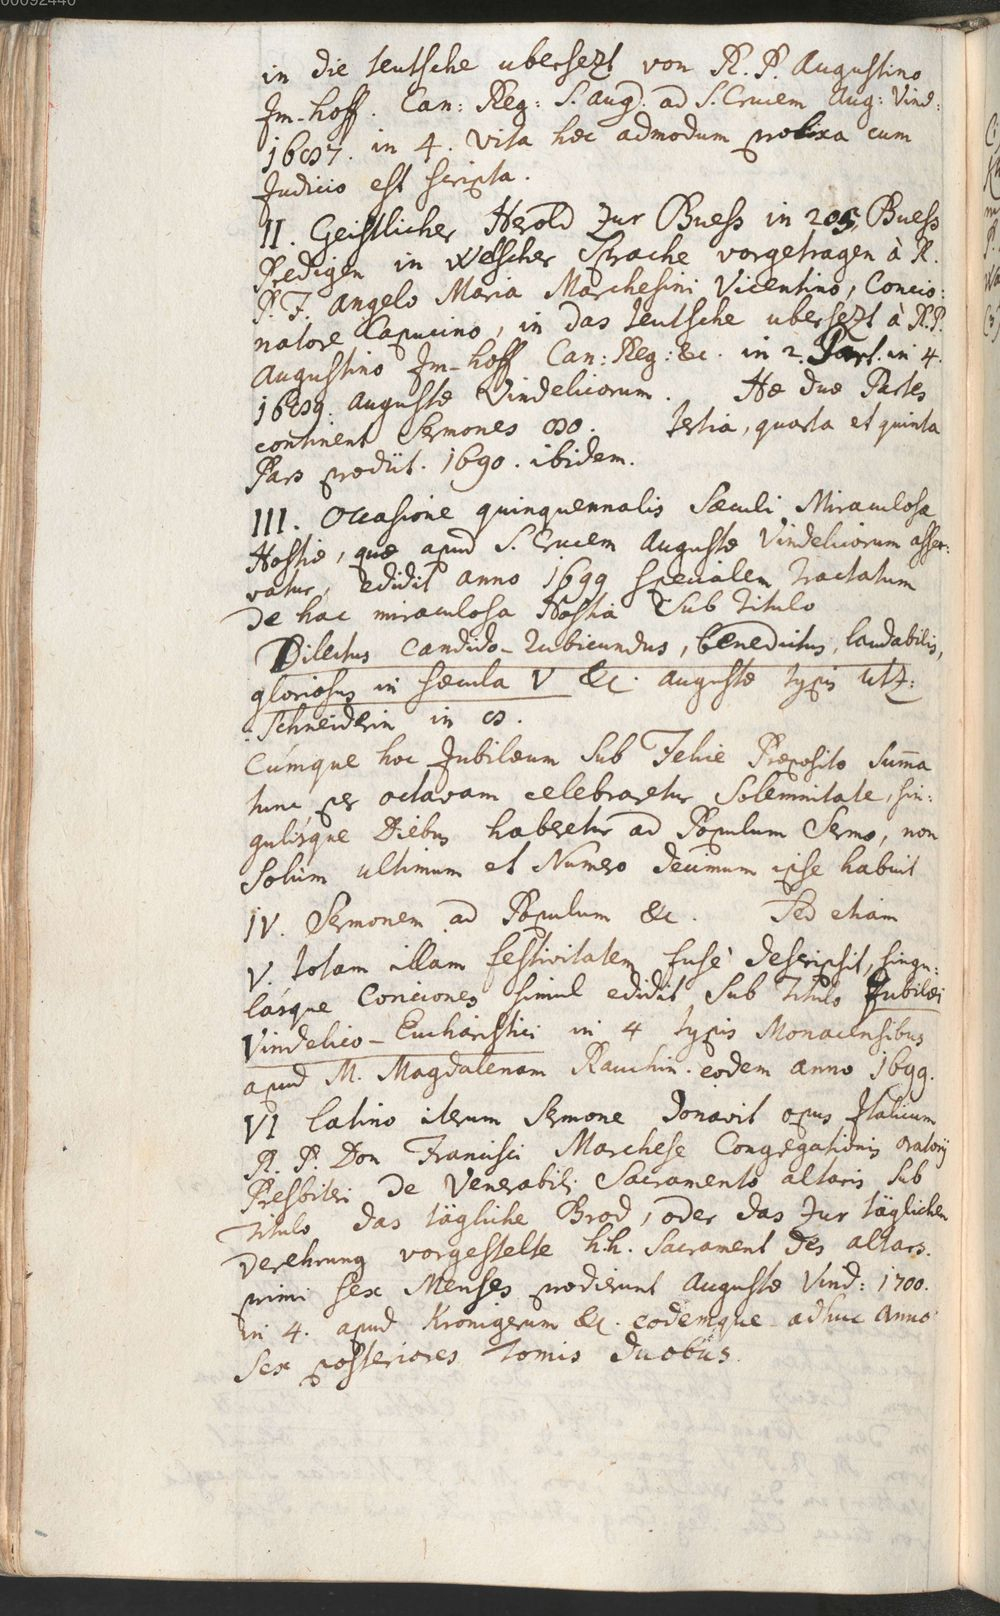 00092440
in die teutsche ubersezt von R. P. Augustino
Im-hoff. Can: Reg: S. Aug. ad S. Crucem Aug: Vind:
1687. in 4. Vita hæc admodum prolixa cum
Judicio est scripta.
II. Geistlicher Herold zur Buess in 205 Buess
Predigen in Welscher Sprache vorgetragen à R.
P. F. Angelo Maria Marchesini Vicentino, Concio:
natore Capucino, in das teutsche ubersezt à R. P.
Augustino Im-hoff Can: Reg: &c. in 2. Part. in 4.
1689. Augustæ Vindelicorum. Hæ duæ Partes
continent Sermones 80. Tertia, quarta et quinta
Pars prodiit. 1690. ibidem.
III. Occasione quinquennalis Sæculi Miraculosæ
Hostiæ, quæ apud S. Crucem Augustæ Vindelicorum asser:
vatur, edidit anno 1699 specialem Tractatum
de hac miraculosa Hostia sub Titulo
Dilectus candido-rubicundus, benedictus, laudabilis,
gloriosus in sæcula V &c. Augustæ typis Utz:
schneiderin in 8.
Cúmque hoc Jubilæum sub Felice Præposito sum̄a
tunc per octavam celebraretur Solemnitate, sin:
gulisque Diebus haberetur ad Populum Sermo, non
solùm ultimum et Numero decimum ipse habuit
IV. Sermonem ad Populum &c. Sed etiam
V. totam illam festivitatem fusè descripsit, singu:
lasque Conciones simul edidit sub Titulo Jubilæi
Vindelico-Eucharistici in 4 typis Monacensibus
apud M. Magdalenam Rauchin. eodem anno 1699.
VI Latino iterum Sermone donavit opus Italicum
R. P. Don Francisci Marchese Congregationis Oratorij
Presbiteri de Venerabili Sacramento altaris sub
Titulo das tägliche Brod, oder das zur täglichen
Verehrung vorgestelte h.h. Sacrament des altars.
primi sex Menses prodierunt Augustæ Vind: 1700.
in 4. apud Kronigerum &c. eodemque adhuc anno
sex posteriores Tomis duobus.